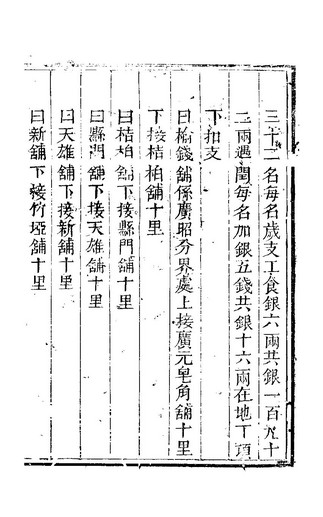 三十二名每名歲支工食銀六兩共銀一百九十
二兩遇閏每名加銀五錢共銀十六兩在地丁項
下扣支
曰榆錢舖係廣昭分界處上接廣元皂角舖十里
下接桔柏舖十里
曰桔柏舖下接縣門舖十里
曰縣門舖下接天雄舖十里
曰天雄舖下接新舖十里
曰新舖下接竹埡舖十里